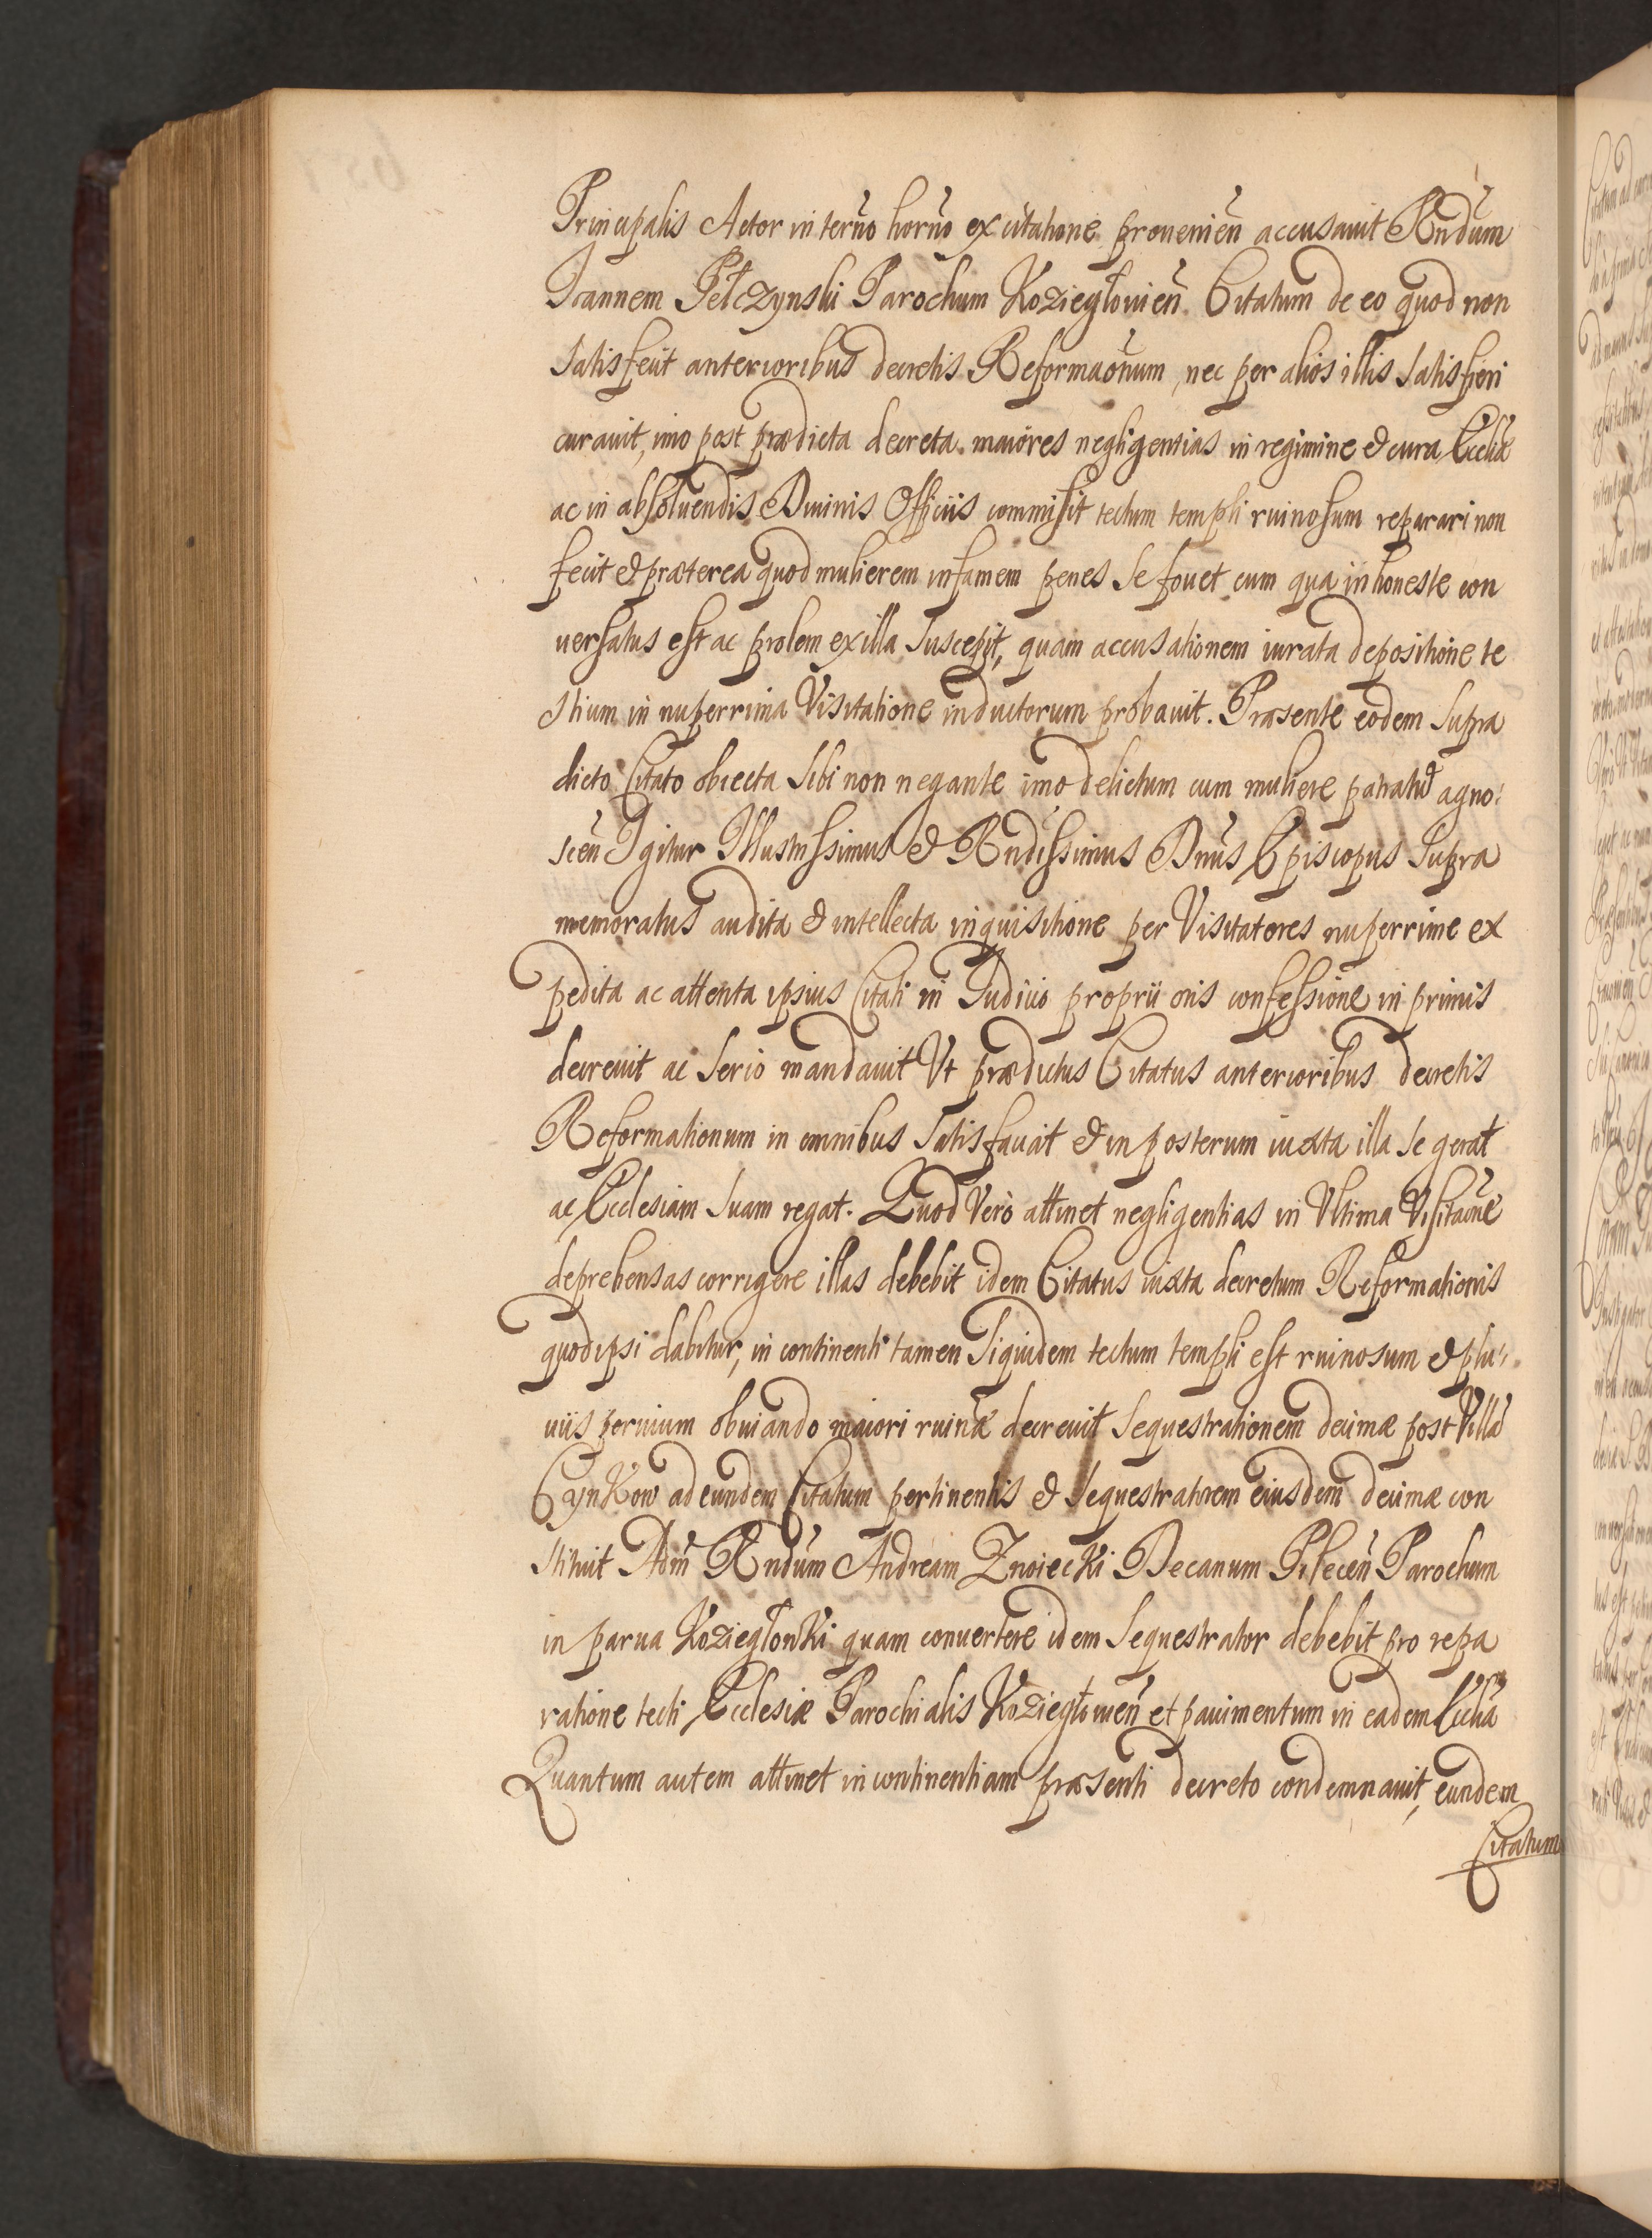 Principalis Actor in terño horño ex citatione prouenieñ accusauit Rndum
Ioannem Pełczynski Parochum Koziegłouieñ Citatum de eo quod non
satisfecit anterioribus decretis Reformaõnum, nec per alios illis satisfieri
curauit, imo post prædicta decreta maiores negligentias in regimine & cura Eccliæ
ac in absoluendis Diuinis Officijs commisit tectum templi ruinosum reparari non
fecit & præterea quod mulierem infamem penes se fouet cum qua inhoneste con
uersatus est ac prolem ex illa suscepit, quam accusationem iurata depositione te
stium in nuperrima Visitatione inductorum probauit. Præsente eodem supra
dicto Citato obiecta sibi non negante imo delictum cum muliere patratũ agno:
sceñ Igitur Illustrissimus & Rndissimus Dnus Episcopus supra
memoratus audita & intellecta inquisitione per Visitatores nuperrime ex
pedita ac attenta ipsius Citati in Iudicio proprij oris confessione in primis
decreuit ac serio mandauit Vt prædictus Citatus anterioribus decretis
Reformationum in omnibus satisfaciat & in posterum iuxta illa se gerat
ac Ecclesiam suam regat. Quod Verò attinet negligentias in Vltima Visitaõne
deprehensas corrigere illas debebit idem Citatus iuxta decretum Reformationis
quod ipsi dabitur, in continenti tamen siquidem tectum templi est ruinosum & plu:
uijs peruium obuiando maiori ruinæ decreuit sequestrationem decimæ post Villã
Cynkow ad eundem Citatum pertinentis & sequestratorem eiusdem decimæ con
stituit Adm Rndum Andream Znoiecki Decanum Pileceñ Parochum
in parua Koziegłowki quam conuertere idem sequestrator debebit pro repa
ratione tecti Ecclesiæ Parochialis Koziegłouieñ et pauimentum in eadem Ecclia
Quantum autem attinet incontinentiam præsenti decreto condemnauit, eundem
Citatum